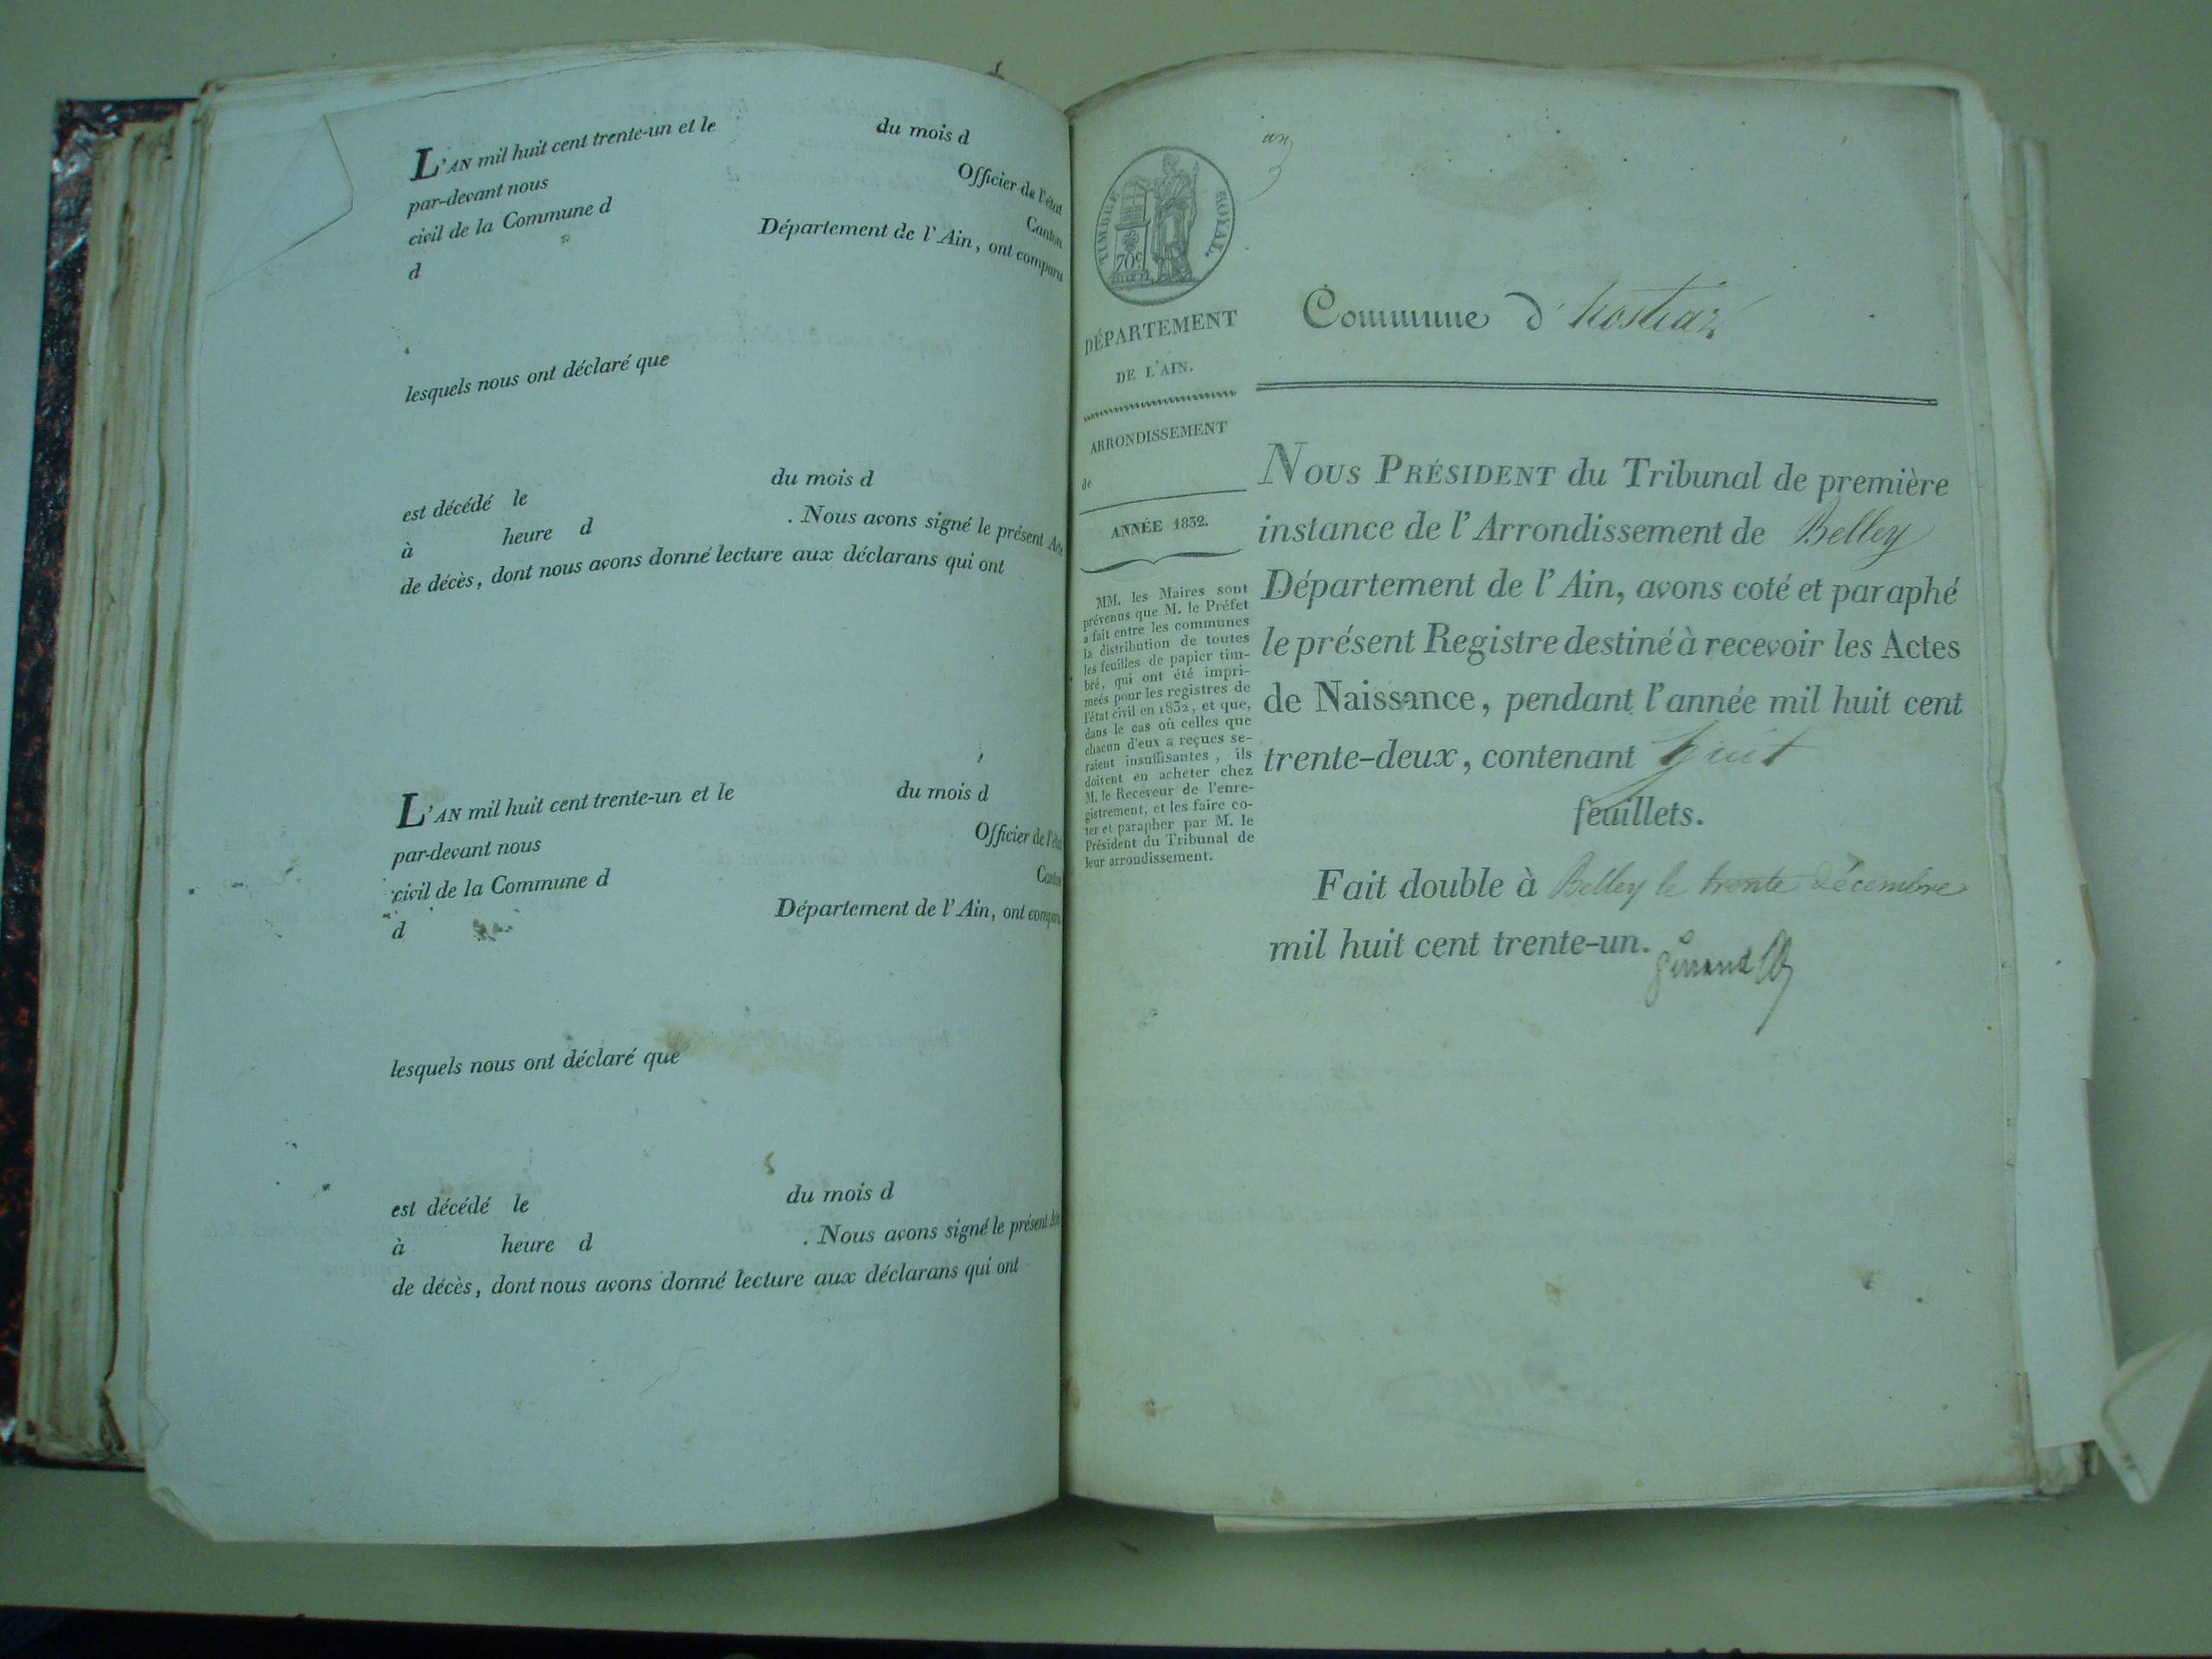 L'AN mil huit cent trente-un et le du mois d
par-devant nous Officier de l'état
civil de la Commune d Canton
d Département de l'Ain, ont comparu
lesquels nous ont déclaré que
est décédé le du mois d
à heure d . Nous avons signé le présent Acte
de décès, dont nous avons donné lecture aux déclarans qui ont
L'AN mil huit cent trente-un et le du mois d
par-devant nous Officier de l'état
civil de la Commune d Canton
d Département de l'Ain, ont comparu
lesquels nous ont déclaré que
est décédé le du mois d
à heure d . Nous avons signé le présent Acte
de décès, dont nous avons donné lecture aux déclarans qui ont
TIMBRE ROYAL.
70c
DÉPARTEMENT
DE L'AIN.
ARRONDISSEMENT
de
ANNÉE 1832.
MM. les Maires sont
prévenus que M. le Préfet
a fait entre les communes
la distribution de toutes
les feuilles de papier tim-
bré, qui ont été impri-
meés pour les registres de
l'état civil en 1832, et que,
dans le cas où celles que
chacun d'eux a reçues se-
raient insuffisantes, ils
doivent en acheter chez
M. le Receveur de l'enre-
gistrement, et les faire co-
ter et parapher par M. le
Président du Tribunal de
leur arrondissement.
Commune d'hostiaz
NOUS PRÉSIDENT du Tribunal de première
instance de l'Arrondissement de Belley
Département de l'Ain, avons coté et paraphé
le présent Registre destiné à recevoir les Actes
de Naissance, pendant l'année mil huit cent
trente-deux, contenant huit
feuillets.
Fait double à Belley le trente décembre
mil huit cent trente-un.